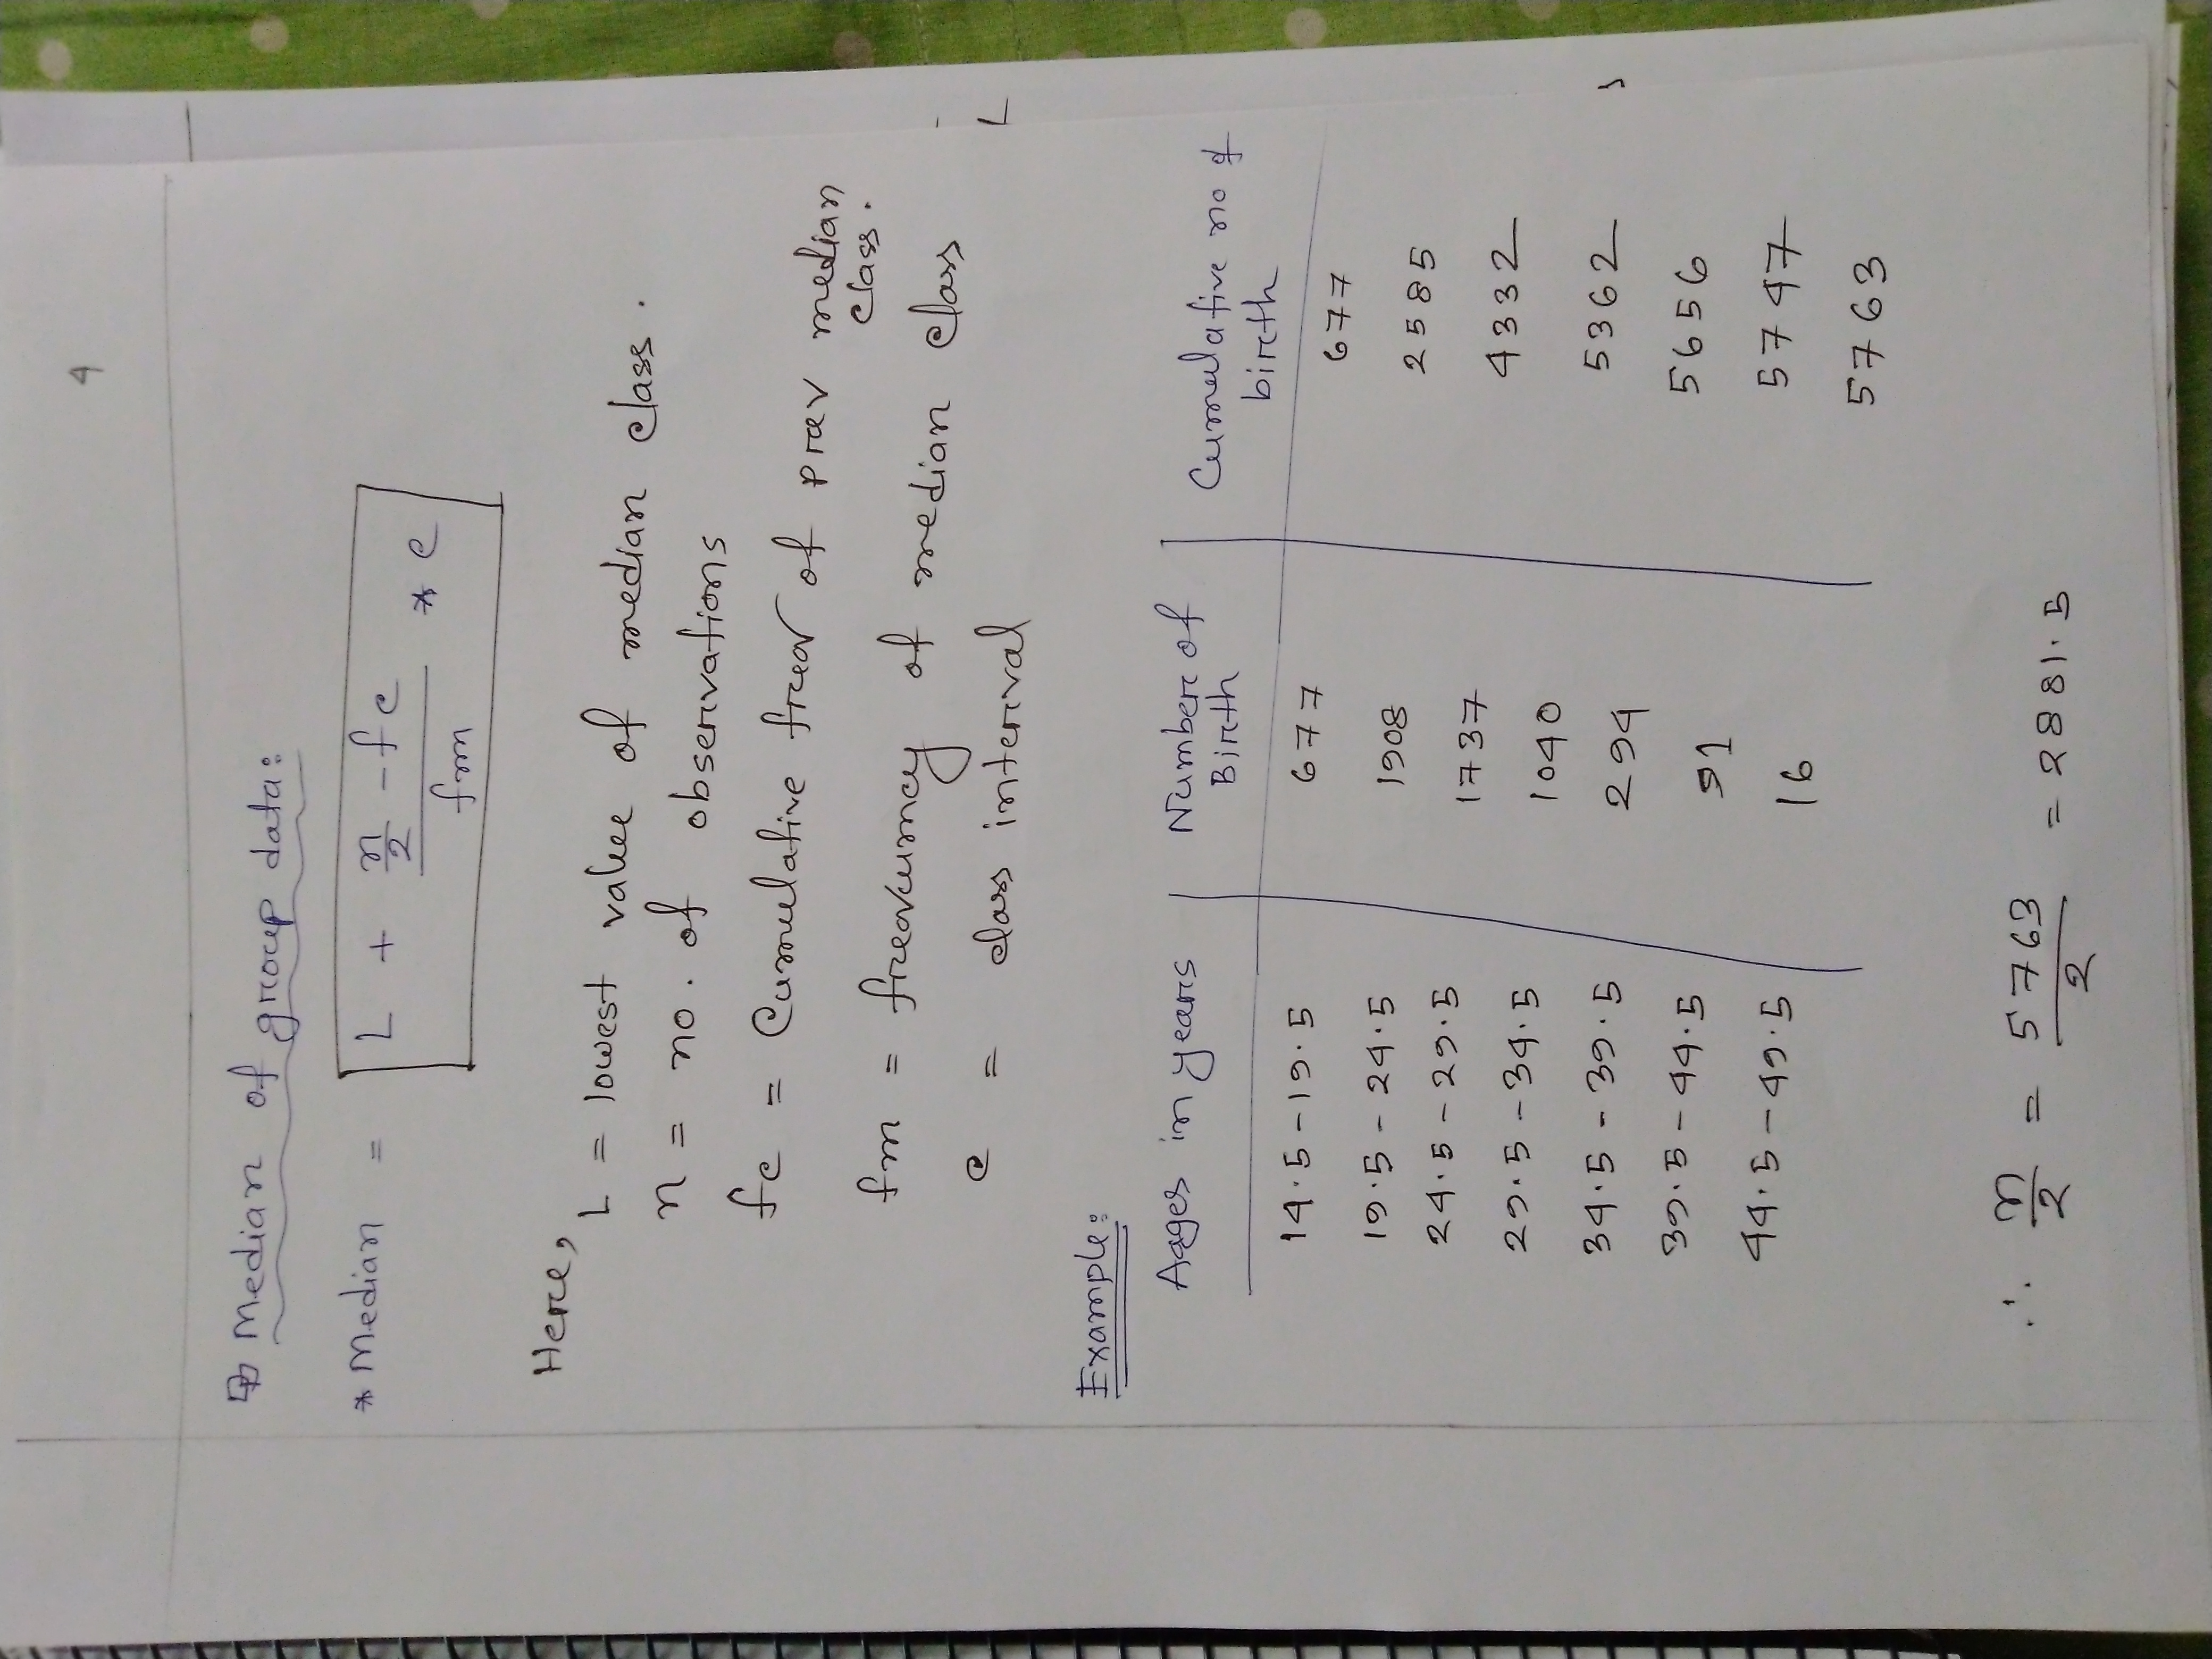 4
Median of group data:
* Median = L + n/2 - fc / fm * c
Here,
L = lowest value of median class.
n = no. of observations
fc = Cumulative freq of prev median
class.
fm = frequency of median class
c = class interval
Example:
Aages in years | Number of Birth | Cumulative no of birth
14.5 - 19.5 | 677 | 677
19.5 - 24.5 | 1908 | 2585
24.5 - 29.5 | 1737 | 4332
29.5 - 34.5 | 1040 | 5362
34.5 - 39.5 | 294 | 5656
39.5 - 44.5 | 91 | 5747
44.5 - 49.5 | 16 | 5763
∴ n/2 = 5763/2 = 2881.5